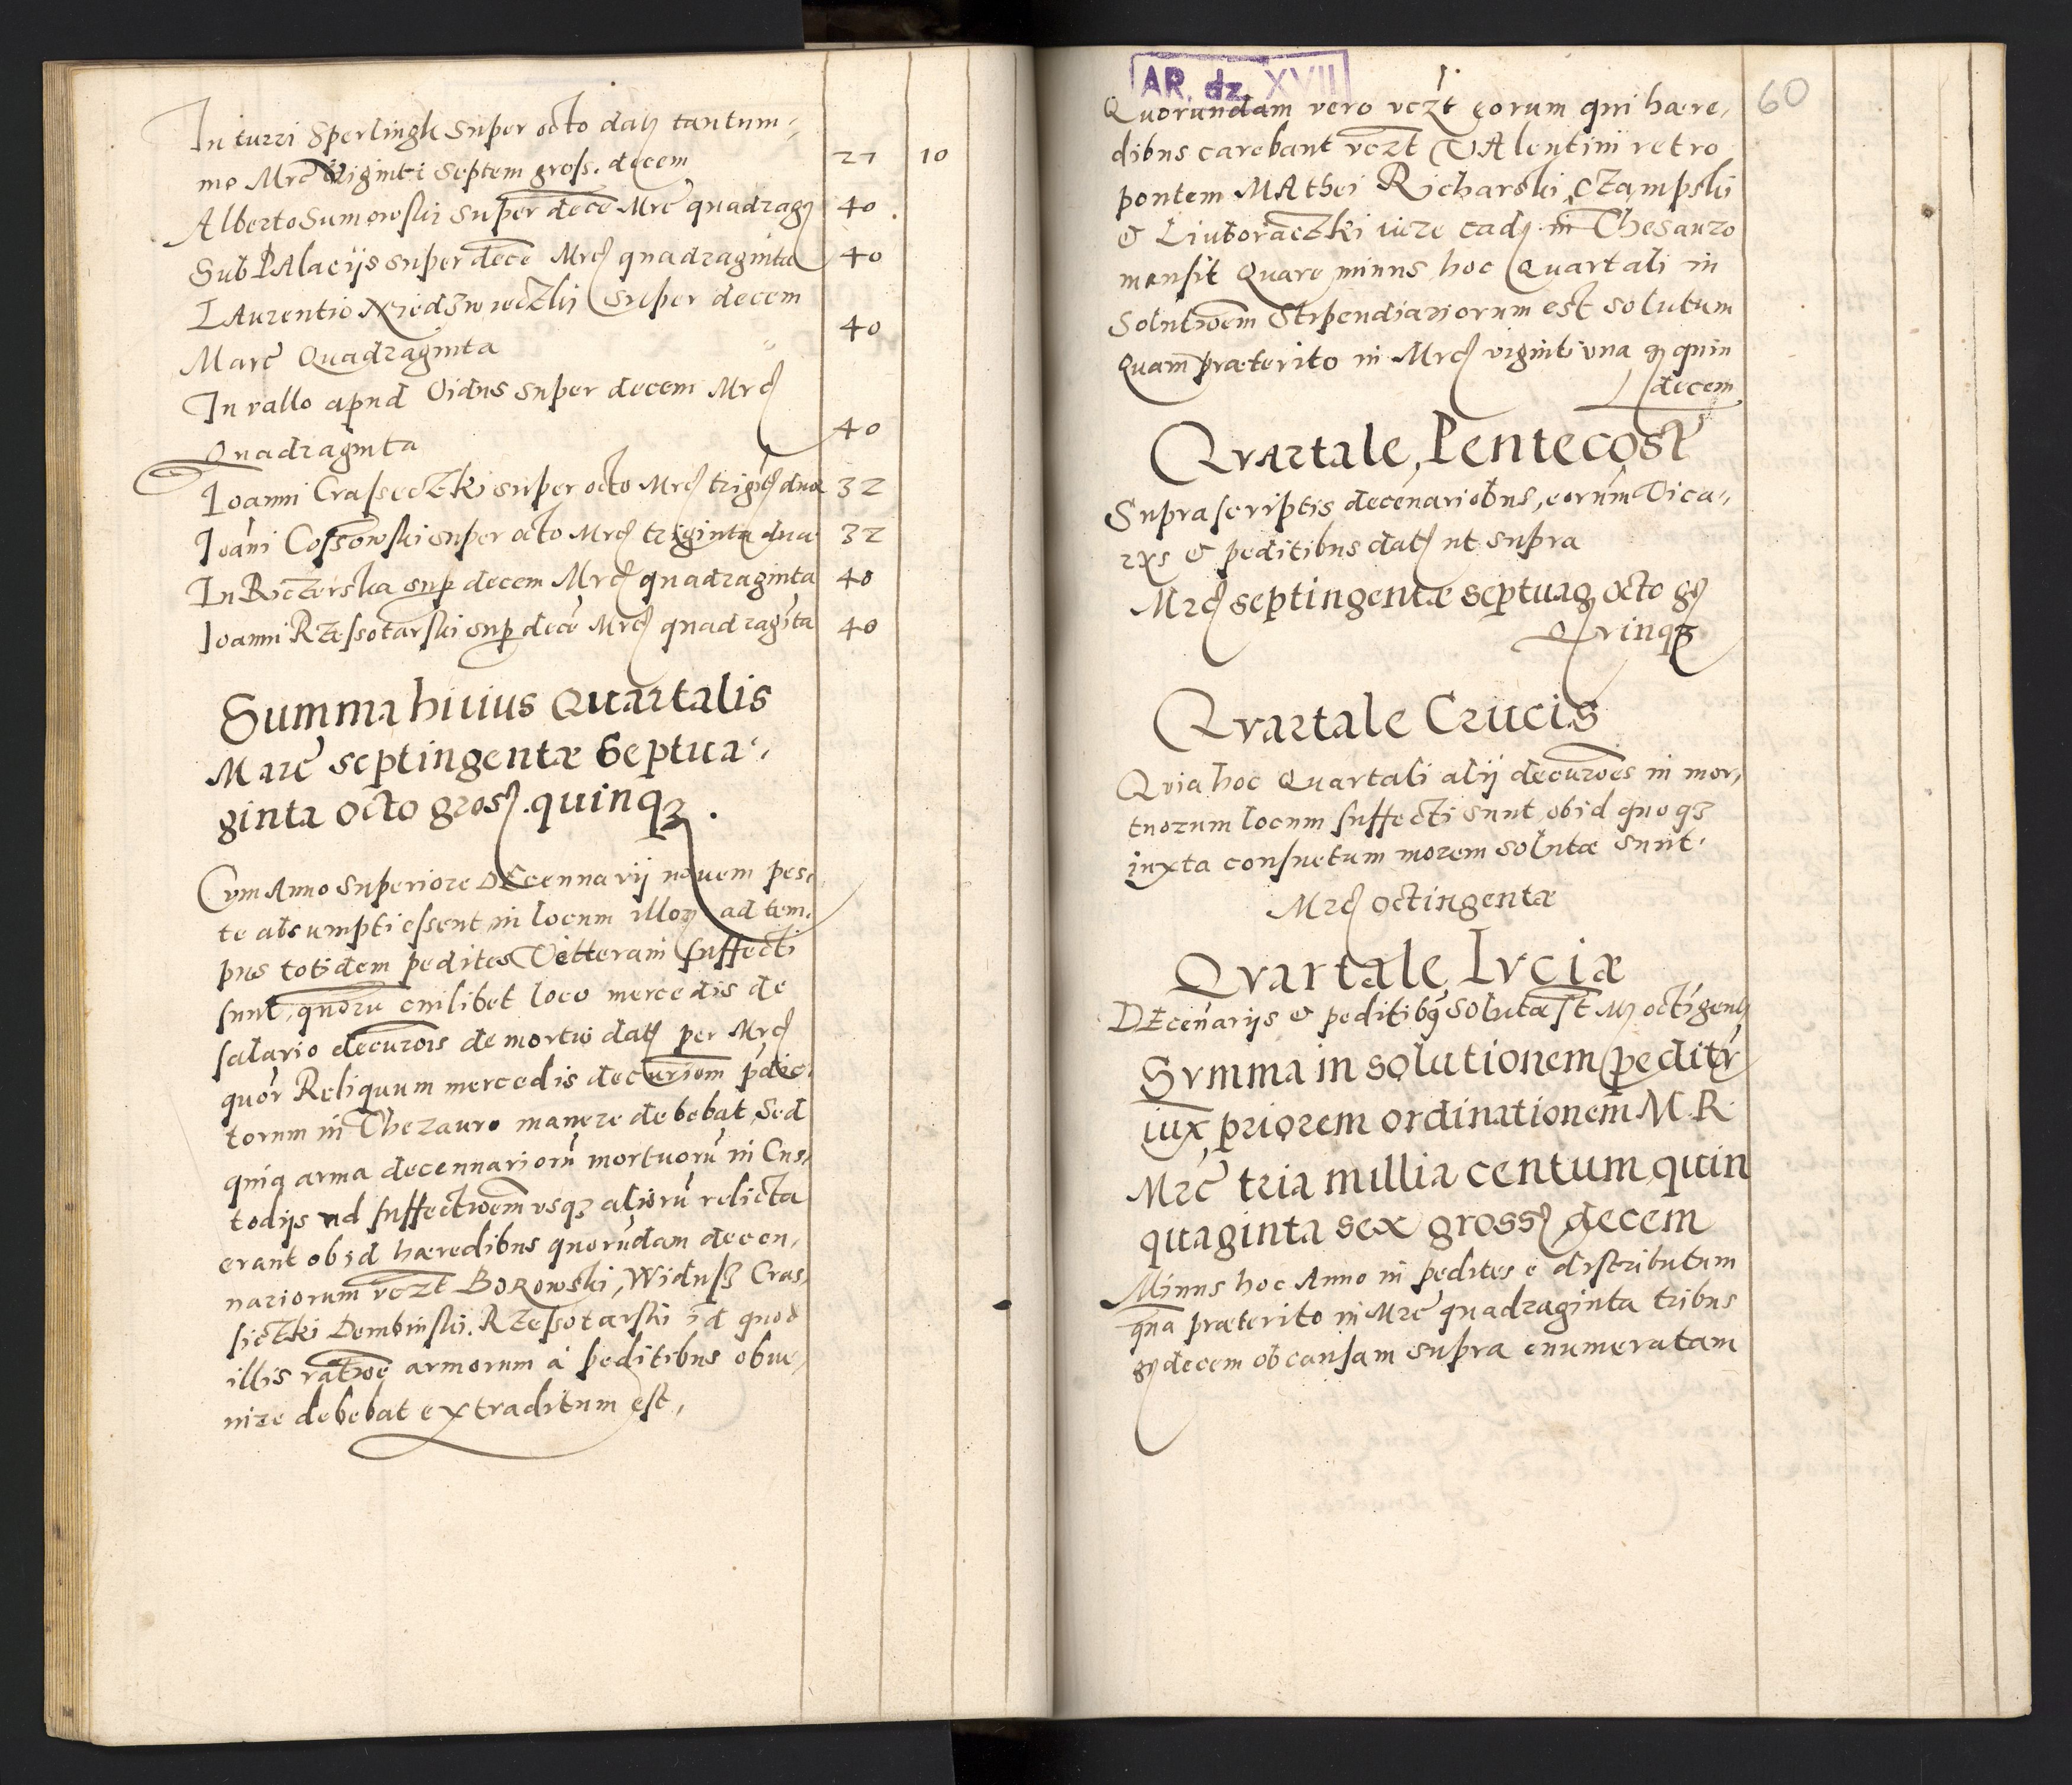 In turri Sperlingk super octo datȝ tantum-
mo Mrc viginti septem gross. decem 27 10
Alberto Sumowski super dece Mrc quadragȝ 40
Sub PAlacijs super dece Mrcȝ quadraginta 40
LAurentio Niedzwieczki super decem
Marc Quadraginta 40
In vallo apud Vidus super decem Mrcȝ
Quadraginta 40
Joanni Crasseczki super octo Mrcȝ trigītȝ duæ 32
Joāni Cossowski super octo Mrcȝ triginta dua 32
In Roczerska sup decem Mrcȝ quadraginta 40
Joanni Rzessotarski sup decē Mrcȝ quadragīta 40
Summa huius Quartalis
Marc septingentæ Septua-
ginta octo grosȝ. quinqȝ.
Cvm Anno superiore DEcennarij novem pes-
te absumpti essent, in locum illoꝝ ad tem-
pus totidem pedites Vetterani suffecti
sunt, quorū cuilibet loco mercedis de
salario decurois de mortui datȝ per Mrcȝ
quor Reliquum mercedis decuriom pdic-
torum in Thezauro manere debebat, Sed
quia arma decennariorū mortuorū in Cus-
todijs ad suffectioem usqȝ aliorū relicta
erant ob id hæredibus quorūdam decen-
nariorum vczt BOROwski, Widusȝ Cras-
siczki Dembinski. Rzessotarski id quod
illis ratioe armorum à peditibus obue-
nire debebat extraditum est,
AR. dz. XVII
60
Quorundam vero vczt eorum qui hære-
dibus carebant vczt VAlentini retro
pontem MAthei Richarski, Czampski
& Liutoraczki iure cadȝ in Thesauro
mansit Quare minus hoc Quartali in
Solutioem Stipendiariorum est solutum
Quam præterito in Mrcȝ viginti una gȝ quin
decem
QvArtale, Pentecosȝ
Supra scriptis decenariobus, eorum Vica-
rys & peditibus datȝ ut supra
Mrcȝ septingentæ septuag octo gȝ
Qvinqȝ
Qvartale Crucis
Qvia hoc Quartali alij decuroes in mor-
tuorum locum suffecti sunt, ob id quoqȝ
iuxta consuetum morem solutæ sunt.
Mrcȝ octingentæ
Qvartale Lvciæ
DEcenarijs & peditibȝ solutæ st Mȝ octīgentȝ
Svmma in solutionem peditū
iux priorem ordinationem M. R.
Mrc tria millia centum quin
quaginta sex grossȝ decem
Minus hoc Anno in pedites ē distributum
qua præterito in Mrc quadraginta tribus
gȝ decem ob causam supra enumeratam